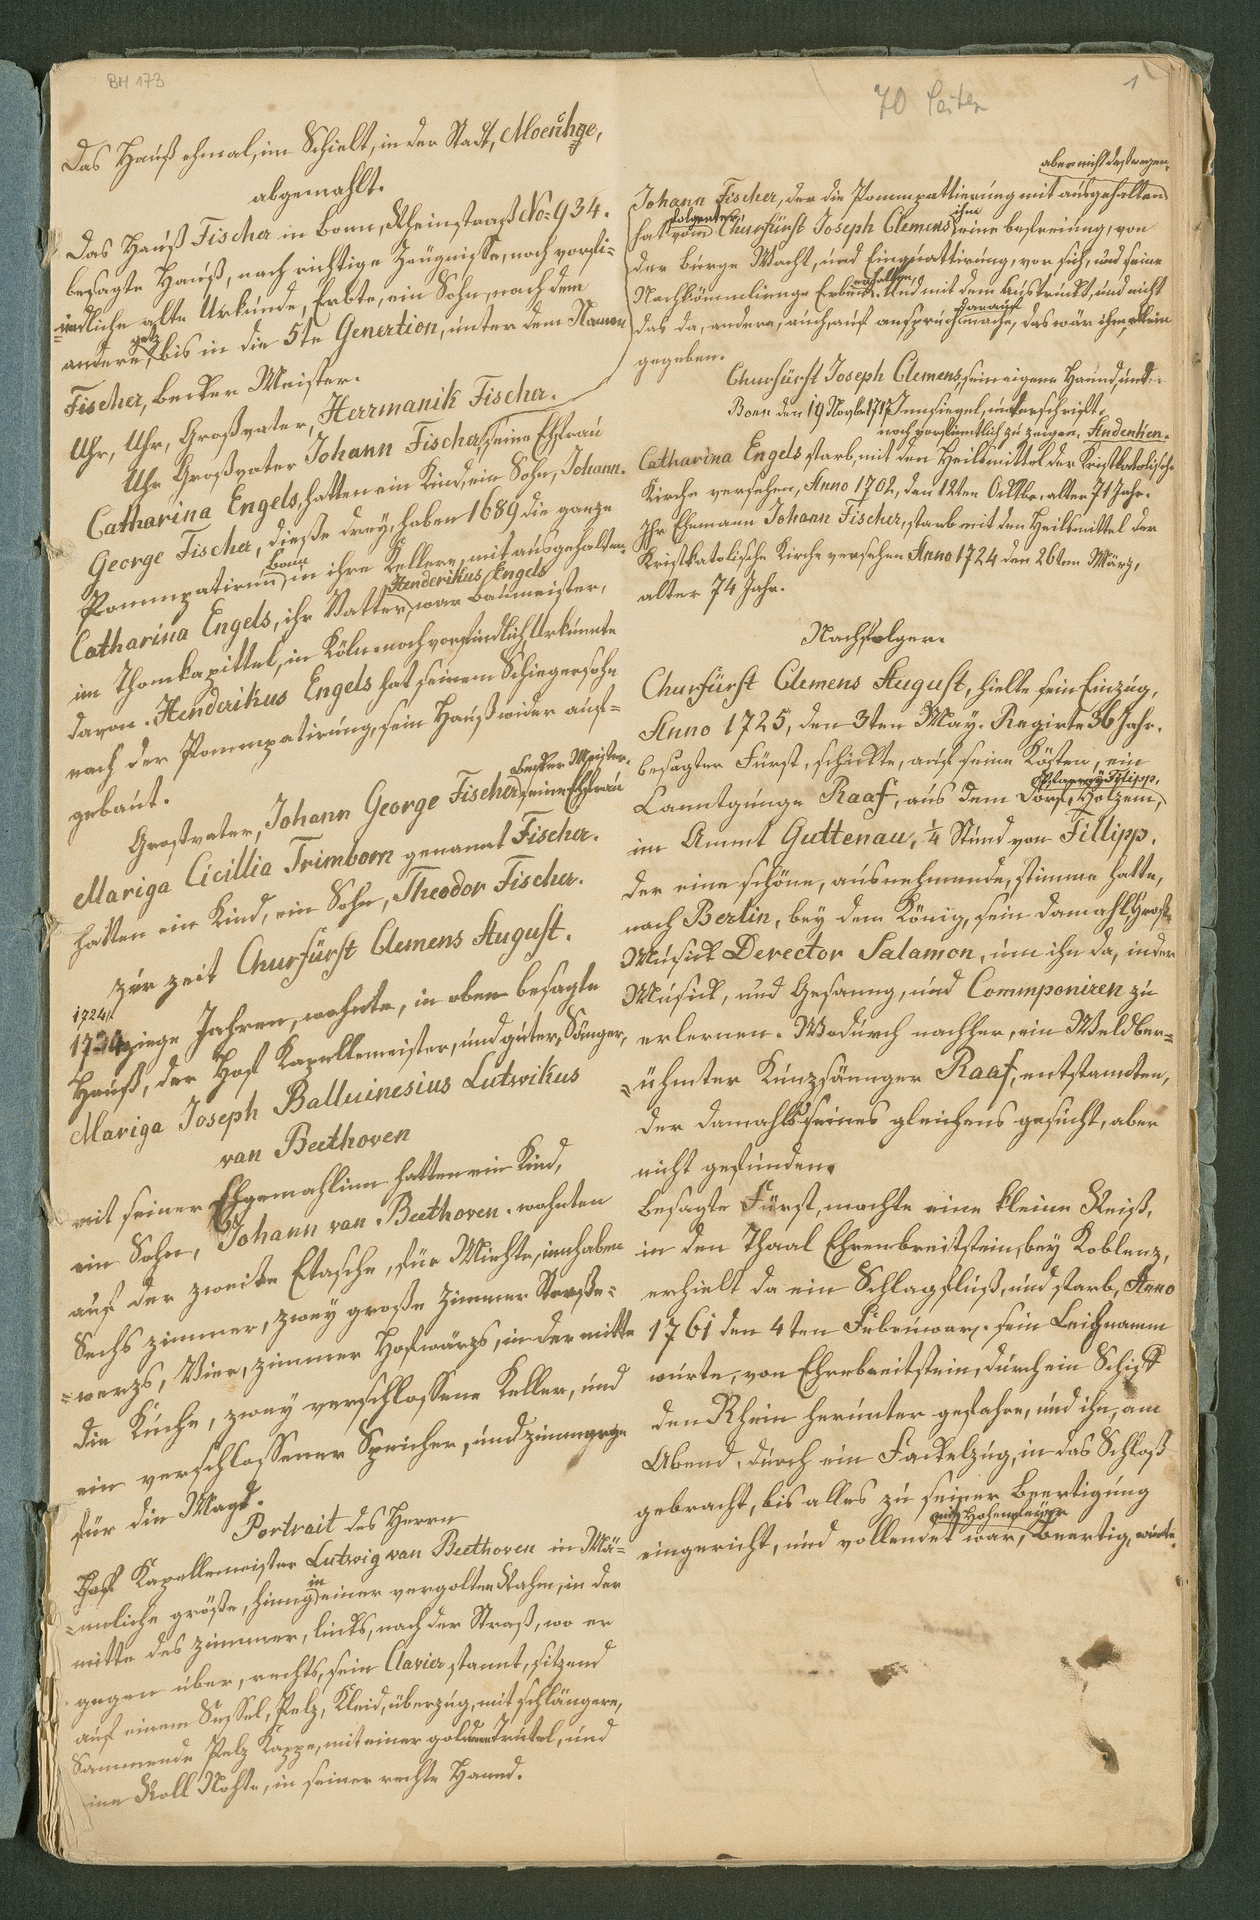 BH 173
70 Seiten
1
Das Hauß ehmal, im Schielt, in der Stadt,
abgemahlt.
Das Hauß Fischer in bonn, Rheinstraß No: 934.
besagte Hauß, nach richtige Zeugnisse, noch vorfi=
indliche alte Urkunde, Erbte, ein Sohn, nach dem
andere, bis in die 5te Genertion, unter dem Namen
Fischer, becker Meister.
Uhr, Uhr, Großvater, Herrmanik Fischer.
Uhr Großvater Johann Fischer, seine Ehfrau
Catharina Engels, hatten ein Kind, ein Sohn, Johann.
George Fischer, dieße drey, haben 1689 die ganze
bonn
in ihre Kellere, mit ausgehalten.
Henderikus Engels
Catharina Engels, ihr Vatter, war baumeister,
im Thomkapittel, in Köln, noch vorfindlich Urkunnte
davon. Henderikus Engels hat seinem Schiegersohn
nach der Pommpatirung, sein Hauß wider auf=
gebaut.
becker Meister.
Großvater, Johann George Fischer, seine Ehfrau
Mariga Cicillia Trimborn genannt Fischer.
hatten ein Kind, ein Sohn, Theodor Fischer.
zur zeit Churfürst Clemens August.
1724
ziege Jahren, wohnte, in oben besagte
Hauß, der Hof Kapellemeister, und guter, Sänger,
Mariga Joseph Balluinesius Lutwikus
van Beethoven
mit seiner Ehgemahlinn hatten ein Kind,
ein Sohn, Johann van Beethoven. wohnten
auf der zweite Etasche, für Miethe, innhaben
Sechs zimmer, zwey große zimmer Straße=
=werzs, Vier, zimmer Hofwärzs, in der mitte
die Küche, zwey verschlossene Keller, und
ein verschlossener Speicher, und
für die Magd.
Portrait des Herrn
Hoff Kapellemeister Lutwig van Beethoven in Mä=
in
=nnliche größe, hinng einer vergolten Rahm, in der
mitte des zimmer, links, nach der Straß, wo er
gegen über, rechts, sein Clavier stannt, sitzend
auf einem Sessel, Pelz, Kleid, überzug, mit schlängere,
Sammende Pelz Kappe, mit einer goldene Trutel, und
eine Roll Nohte, in seiner rechte Hannd.
aber nicht deßwegen.
Johann Fischer, der die Pommpattierung mit ausgehalten
ihm
hat vom Churfürst Joseph Clemens eine befreiung, von
der bürge Wacht, und Einquattirung, vor sich, und seine
erhalten,
Nachkömmlienge Erben. Und mit dem Ausdruckt, und nicht
darauf
das da, andere, auch, auf anspruch mache, das wär ihm, allein
gegeben.
Churfürst Joseph Clemens, sein eigene Hannd, und
Bonn den 19 Novbr 1717 Innsiegel, unterschrift.
noch vorkömtlich zu zeigen,
Catharina Engels starb, mit den Heilsmittel der Kristkatolische
Kirche versehen, Anno 1702, den 12ten Ocktbr. alter 71 Jahr.
Ihr Ehemann Johann Fischer, starb mit den Heilsmittel der
Kristkatolische Kirche versehen Anno 1724 den 26ten März,
alter 74 Jahr.
Nachfolger.
Churfürst Clemens August, hielte sein Einzug,
Anno 1725, den 3ten May. Regirte 36 Jahr.
besagter Fürst, schickte, auf seine Kösten, ein
Lanntgunge Raaf, aus dem Dorf, Holzem,
im Ammt Guttenau, ¼ Stund von Fillipp.
der eine schöne, ausnehmende, stimme hatte,
nach Berlin, bey dem König, sein damahl, Groß=
Musick Derector Salamon, um ihn da, in der
Musick, und Gesanng, und Commponiren zu
erlernen. Wodurch nachher, ein Weldber=
=ühmter Kunzsännger Raaf, entstandten,
der damahls seines gleichens gesucht, aber
nicht gefunden.
besagte Fürst, machte eine kleine Reiß,
in den Thaal Ehrenbreitstein, bey Koblenz,
erhielt da ein Schlagfluß, und starb, Anno
1761 den 4ten Febriwary. sein Leichnamm
wurte, von Ehrebreitstein, durch ein Schiff
den Rhein herunter gefahre, und ihn, am
Abend, durch ein Fackelzug, in das Schloß
gebracht, bis alles zu seiner Beertigung
eingericht, und vollendet war, Beertig, wirte.